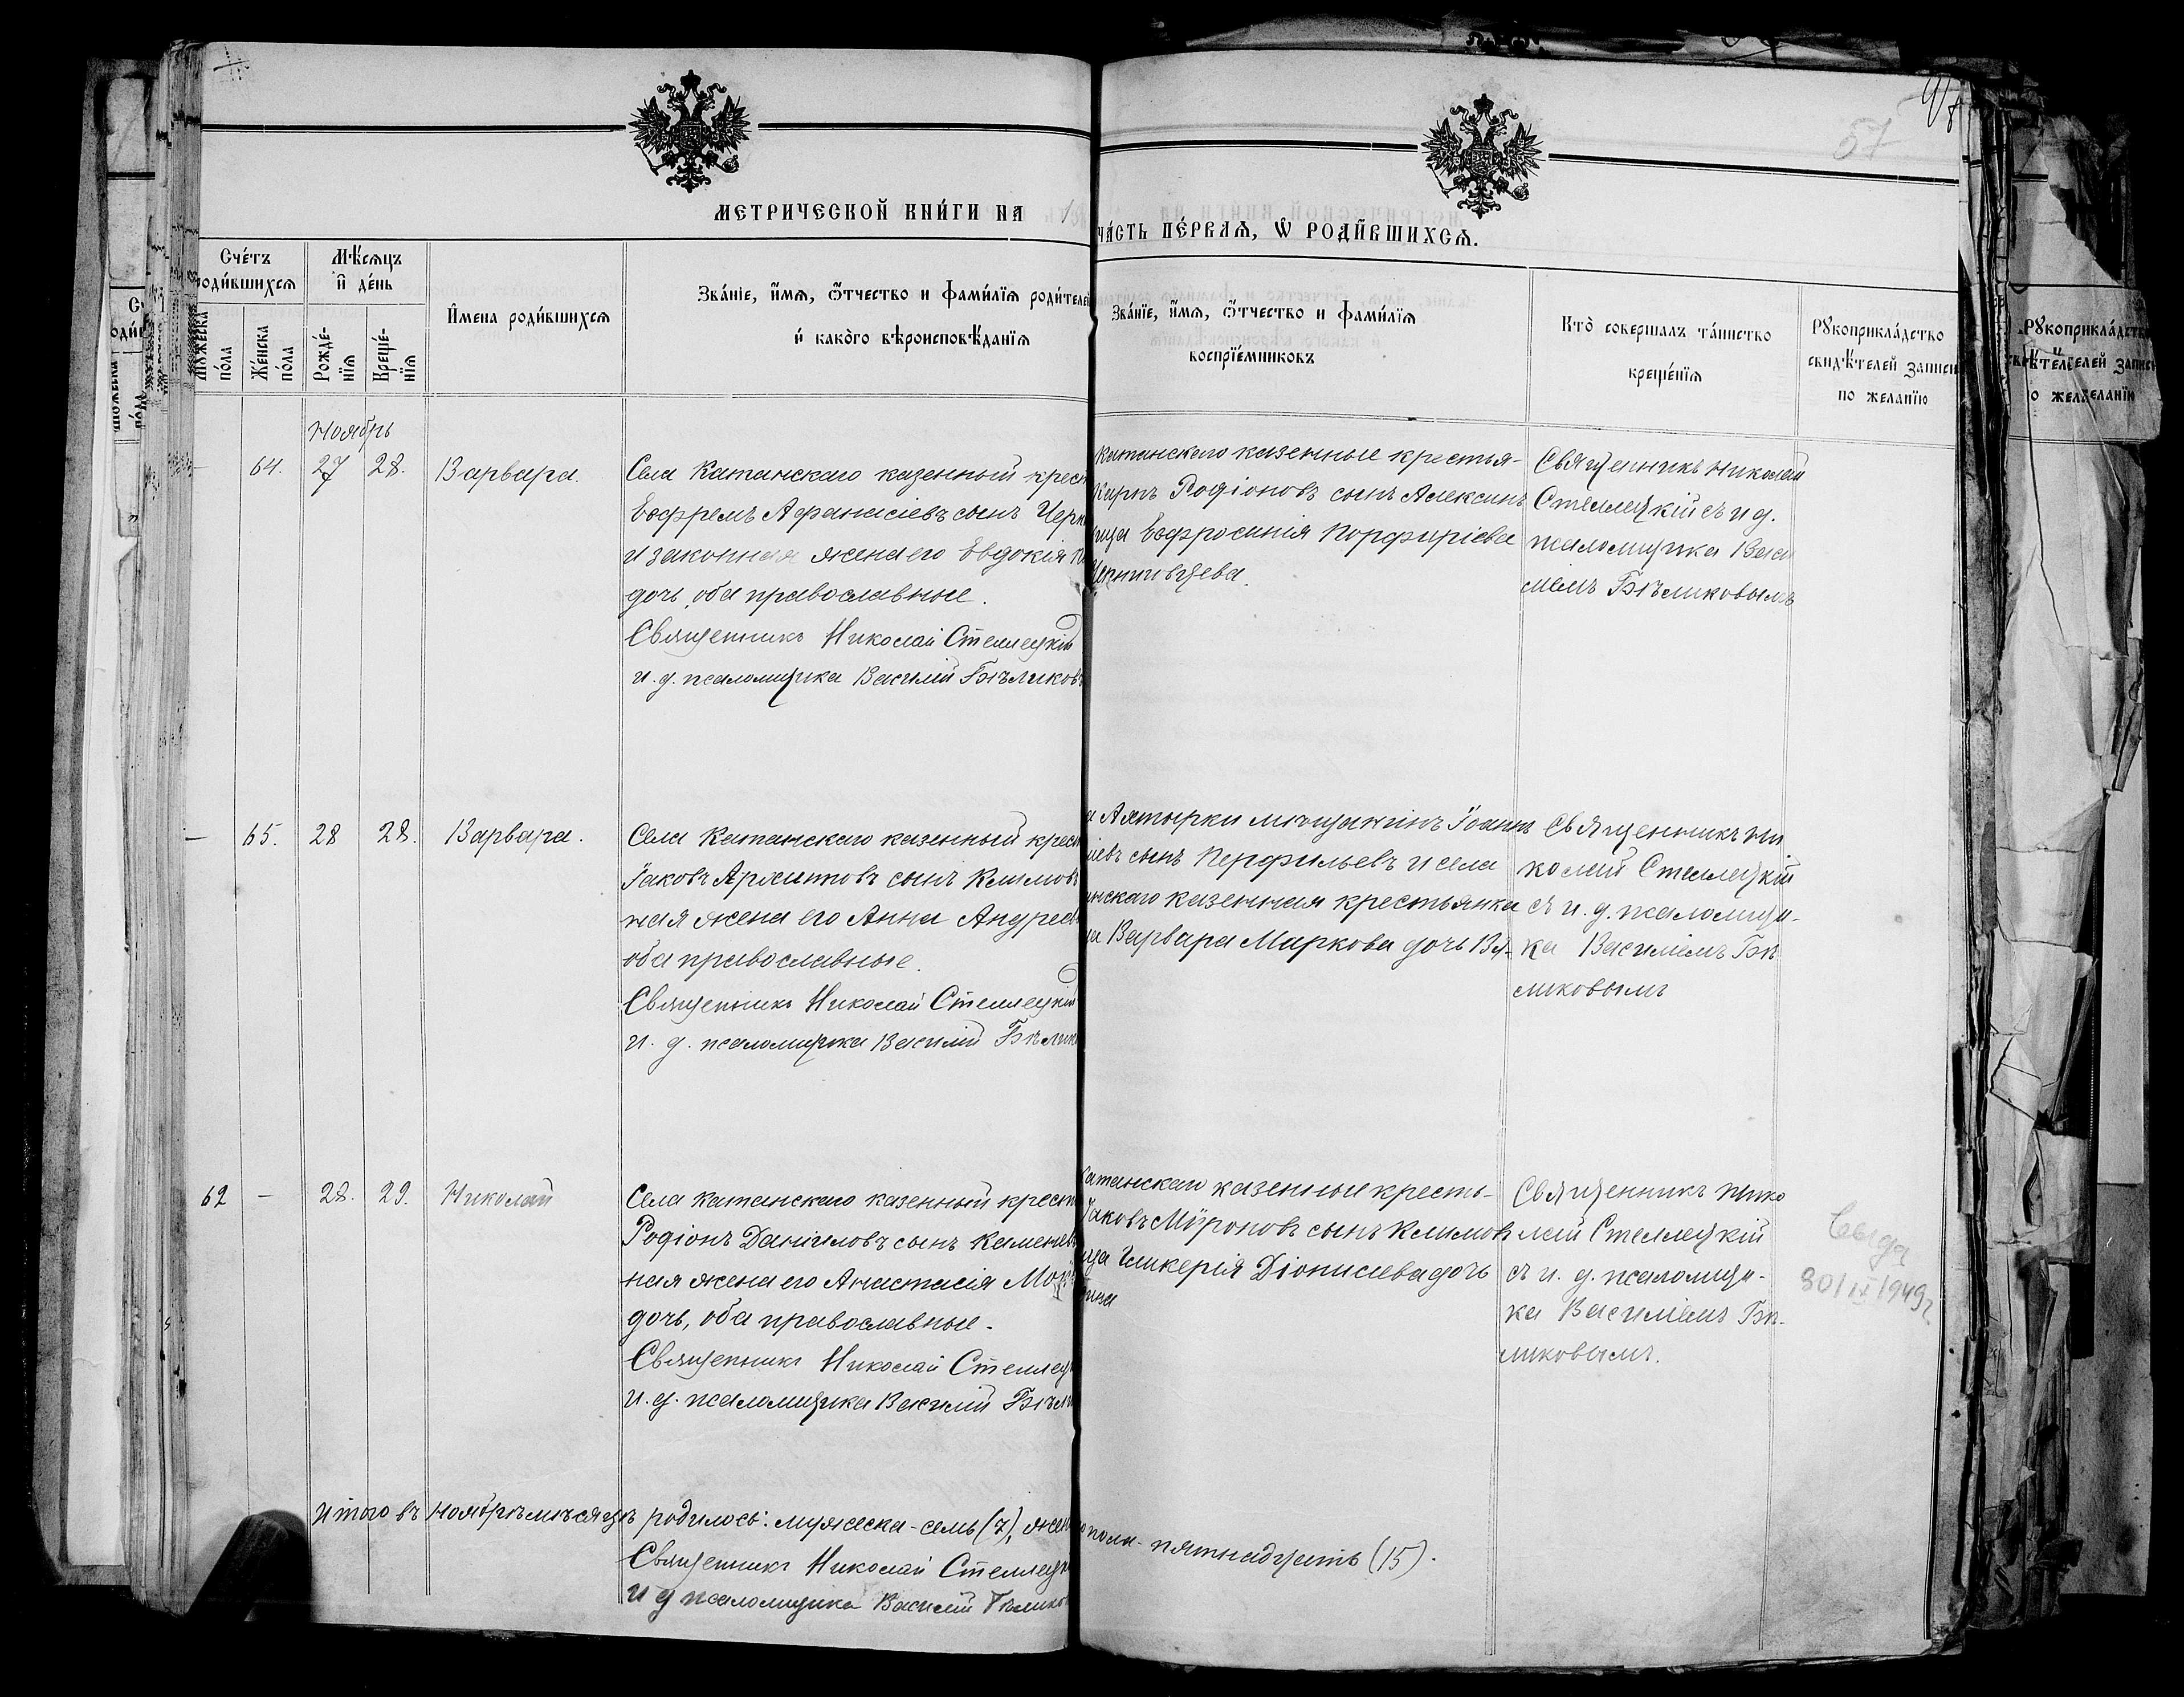 57
МЕТРИЧЕСКОЙ КНИ́ГИ НА 1
ЧА́СТЬ ПЕ́РВАѦ, Ѡ РОДИ́ВШИХСѦ.
Сче́тъ
роди́вшихсѧ
Мѣ́сѧцъ
и де́нь
И́мена роди́вшихсѧ
Зва́нїе, и́мѧ, ѻ҆́тчество и фами́лїѧ роди́телей
и҆ како́го вѣроисповѣ́данїѧ
Зва́нїе, и́мѧ, ѻ҆́тчество и фами́лїѧ
воспрїе́мниковъ
Кто̀ совершалъ та́инство
креще́нїѧ
Рꙋкоприкла́дство
свидѣ́телей записи
по желанїю
Мꙋ́жеска
по́ла
Же́нска
по́ла
Рожде́-
нїѧ
Креще́-
нїѧ
Ноябрь
64. 27 28. Варвара.
Села Катанскаго казенный крест
Ефремъ Афанасіевъ сынъ Черн
и законная жена его Евдокія
дочь, оба православные.
Священникъ Николай Стеллецкій
и. д. псаломщика Василій Бѣликовъ
Катанскаго казенные крестья-
Карпъ Родіоновъ сынъ Алексинъ
ица Евфросинія Порфиріева
Священникъ Николай
Стеллецкій съ и д.
псаломщика Васи
ліемъ Бѣликовымъ
— 65. 28 28. Варвара.
Села Катанскаго казенный крест
Іаковъ сынъ Климовъ
ная жена его Анна Андреев
оба православные.
Священникъ Николай Стеллецкій
и. д. псаломщика Василій Бѣлик
а Ахтырки мѣщанинъ Іоаннъ
іевъ сынъ Перфильевъ и села
нскаго казенная крестьянка
ца Варвара Маркова дочь Вя-
Священникъ Ни
колай Стеллецкій
съ и. д. псаломщи-
ка Василіемъ Бѣ
ликовымъ
62 — 28. 29. Николай
Села Катанскаго казенный крест
Родіонъ Даніиловъ сынъ Каменев
ная жена его Анастасія Мок
дочь, оба православные.
Священникъ Николай Стеллец
и. д. псаломщика Василій Бѣли
атанскаго казенные кресть-
Іаковъ Мѵроновъ сынъ Климовъ
ица Гликерія Діонисіева дочь
Священникъ Нико
лай Стеллецкій
съ и. д. псаломщи-
ка Василіемъ Бѣ-
ликовымъ.
30/IX 1949г
Итого въ Ноябрѣ мѣсяцѣ родилось: мужеска - семь (7), жен пола - пятнадцать (15).
Священникъ Николай Стеллецк
и д псаломщика Василій Бѣликов